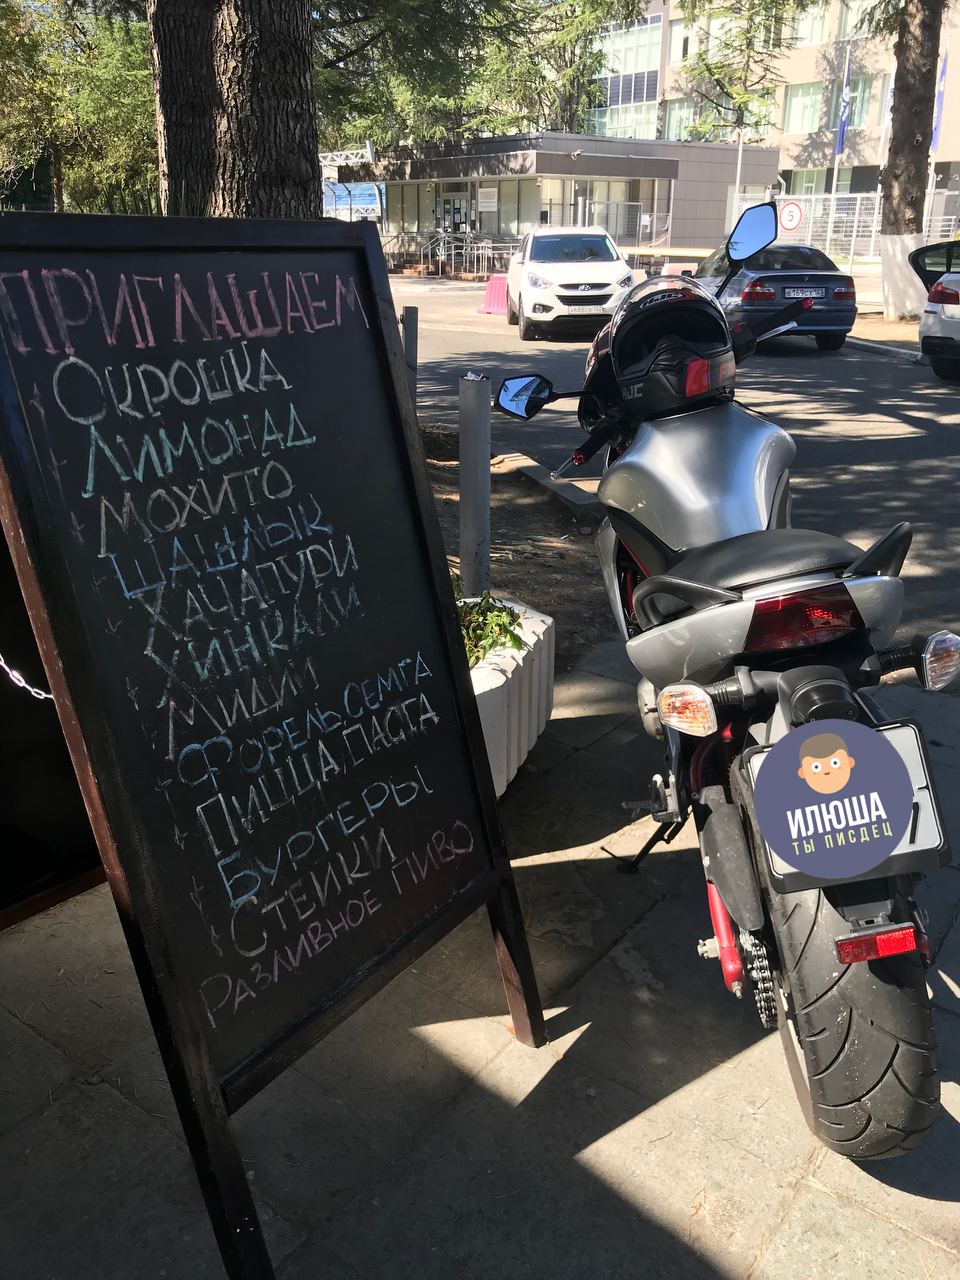 ПРИГЛАШАЕМ
ОКРОШКА
ЛИМОНАД
МОХИТО
ШАШЛЫК
ХАЧАПУРИ
ХИНКАЛИ
МИДИИ
ФОРЕЛЬ, СЕМГА
ПИЦЦА, ПАСТА
БУРГЕРЫ
СТЕЙКИ
РАЗЛИВНОЕ ПИВО
5
В169СХ 123
HJC
HJC
ИЛЮША
ТЫ ПИСДЕЦ